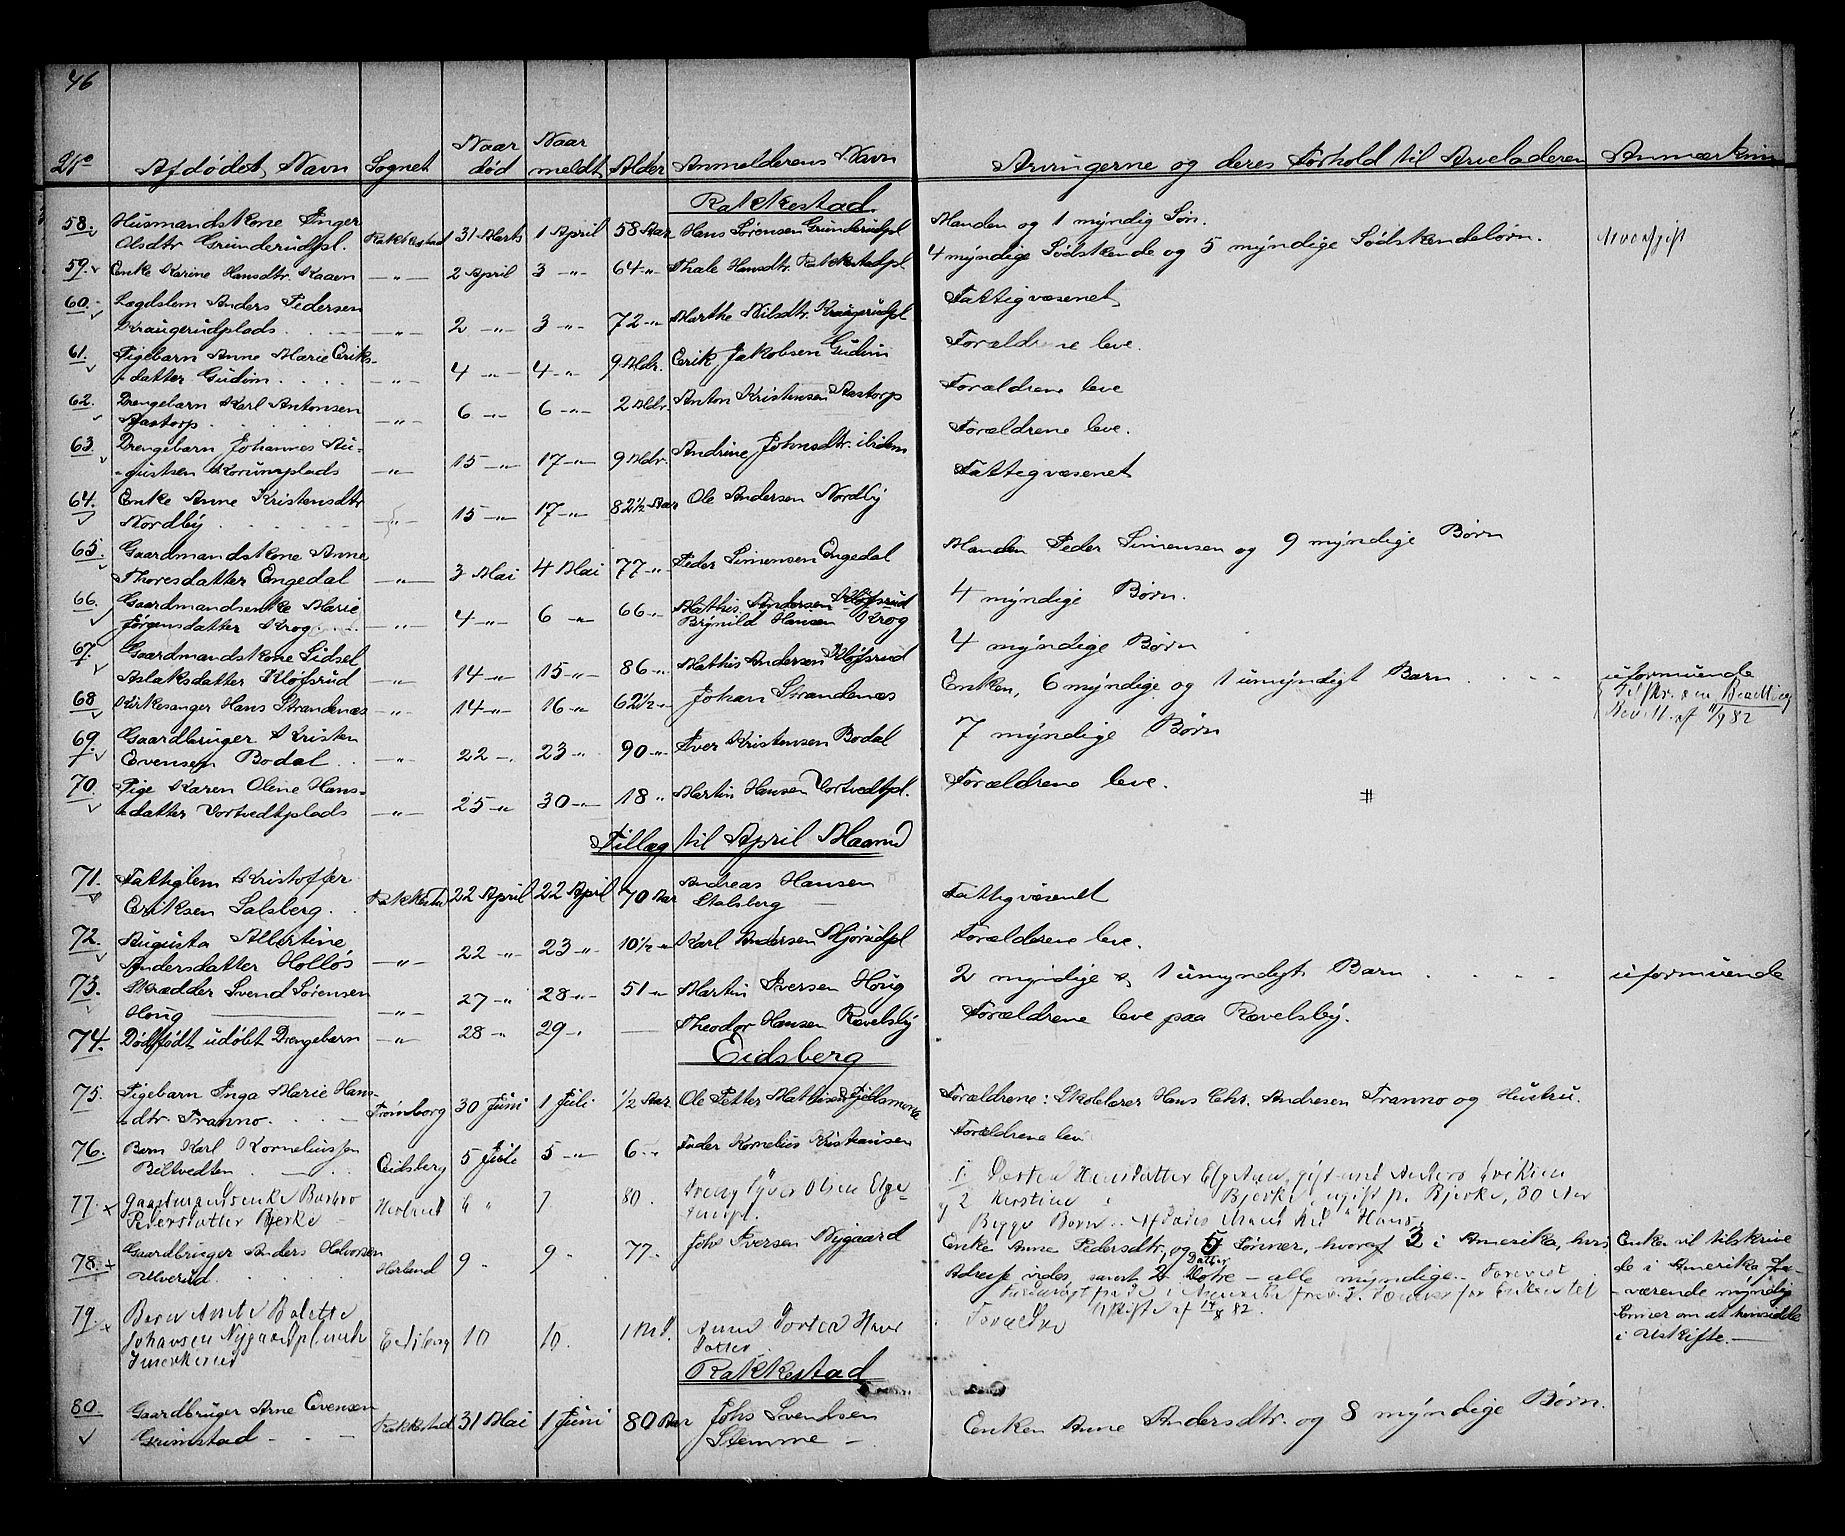 46
No Afdødet, Navn Sognet Naar død Naar meldt Alder Anmelderens Navn Arvingerne og deres Forhold til Arveladeren Anmærkning
Rakkestad
58. Husmandskone Inger
Olsdtr. Grinderudpl. Rakkestad 31 Marts 1 April 58 Aar Hans Sørensen Grinderudpl Manden og 1 myndig Søn.
59. Enke Karine Hansdtr. Kaaen —"— 2 April 3 —"— 64 —"— Thale Hansdtr. Rakkestadpl 4 myndige Sødskende og 5 myndige Sødskendebørn. Arveafgift
60. Lægdslem Anders Pedersen
Kraugerudplads. —"— 2 —"— 3 —"— 72 —"— Marthe Nilsdtr. Kraugerudpl Fattigvæsenet
61. Pigebarn Anne Marie Eriks-
datter Gudim —"— 4 —"— 4 —"— 9 Mdr. Erik Jakobsen Gudim Forældrene leve.
62. Drengebarn Karl Antonsen
Aastorp. —"— 6 —"— 6 —"— 2 Mdr. Anton Kristensen Aastorp Forældrene leve
63. Drengebarn Johannes Au-
gustsen Korumplads —"— 15 —"— 17 —"— 9 Mdr. Andrine Johnsdtr. ibidem Forældrene leve.
64. Enke Anne Kristensdtr
Nordby —"— 15 —"— 17 —"— 82½ Aar Ole Andersen Nordby Fattigvæsenet
65. Gaardmandskone Anne
Thoresdatter Engedal —"— 3 Mai 4 Mai 77 —"— Peder Simensen Engedal Manden Peder Simensen og 9 myndige Børn
66. Gaardmandsenke Marie
Jørgensdatter Krog —"— 4 —"— 6 —"— 66 —"— Mathis Andersen Kløfsrud
Brynild Hansen Krog 4 myndige Børn.
67. Gaardmandskone Sidsel
Aslaksdatter Kløfsrud —"— 14 —"— 15 —"— 86 —"— Mathis Andersen Kløfsrud 4 myndige Børn
68 Kirkesanger Hans Strandenæs —"— 14 —"— 16 —"— 62½ —"— Johan Strandenæs Enken, 6 myndige og 1 umyndigt Barn . . . uformuende
Bevill. af 11/9 82
69. Gaardbruger Kristen
Evensen Bodal —"— 22 —"— 23 —"— 90 —"— Iver Kristensen Bodal 7 myndige Børn
70. Pige Karen Oline Hans-
datter Vortvedtplads —"— 25 —"— 30 —"— 18 " Martin Hansen Vortvedtpl. Forældrene leve.
#
Tillæg til April Maaned
71. Fattiglem Kristoffer
Eriksen Salsberg. Rakkestad 22 April 22 April 70 Aar Andreas Hansen
Stalsberg — Fattigvæsenet
72. Augusta Albertine
Andersdatter Holløs —"— 22 —"— 23 —"— 10½ —"— Karl Andersen Mjørudpl Forældrene leve.
73. Skrædder Svend Sørensen
Houg —"— 27 —"— 28 —"— 51 —"— Martin Iversen Houg 2 myndige & 1 umyndigt Barn . . . uformuende
74. Dødfødt udøbt Drengebarn —"— 28 —"— 29 " — Theodor Hansen Rævelsby Forældrene leve paa Rævelsby.
Eidsberg
75. Pigebarn Inga Marie Hans-
dtr. Tranno. — Trømborg 30 Juni 1 Juli ½ Aar. Ole Petter Mathisen Forældrene: Skolelærer Hans Chr. Andresen Tranno og Hustru.
76. Barn Karl Korneliussen
Biltvedten Eidsberg 5 Juli 5 —"— 6 —"— Fader Kornelius Kristiansen Forældrene leve
77. Gaardmandsenke Barbro
Pedersdatter Bjerke — Herland 6 " 7. 80. Iver Olsen 1. gift med Anders Eriksen
2 Kirstine Bjerke, ugift p. Bjerke, 30 Aar
Begge Børn Afdødes Hans.
78. Gaardbruger Anders Halvorsen
Ulverud. Herland 9 — 9 — 77. Johs Iversen Nygaard Enke Anne Pedersdtr, og 5 Sønner, hvoraf 3 i Amerika, hvis
Adresse vides, samt 2 Døtre — alle myndige.
af 14/8 82.
Enken vil tilskrive
de i Amerika fra-
værende myndige
Sønner om at hensidde
i Uskifte. —
79. Barn
Johansen Eidsberg 10 10. 1 Md. Anne Forældre
Rakkestad
80. Gaardbruger Arne Evensen
Grimstad — Rakkestad 31 Mai 1 Juni 80 Aar Johs Svendsen
Stemme — Enken Anne Andersdtr. og 8 myndige Børn.